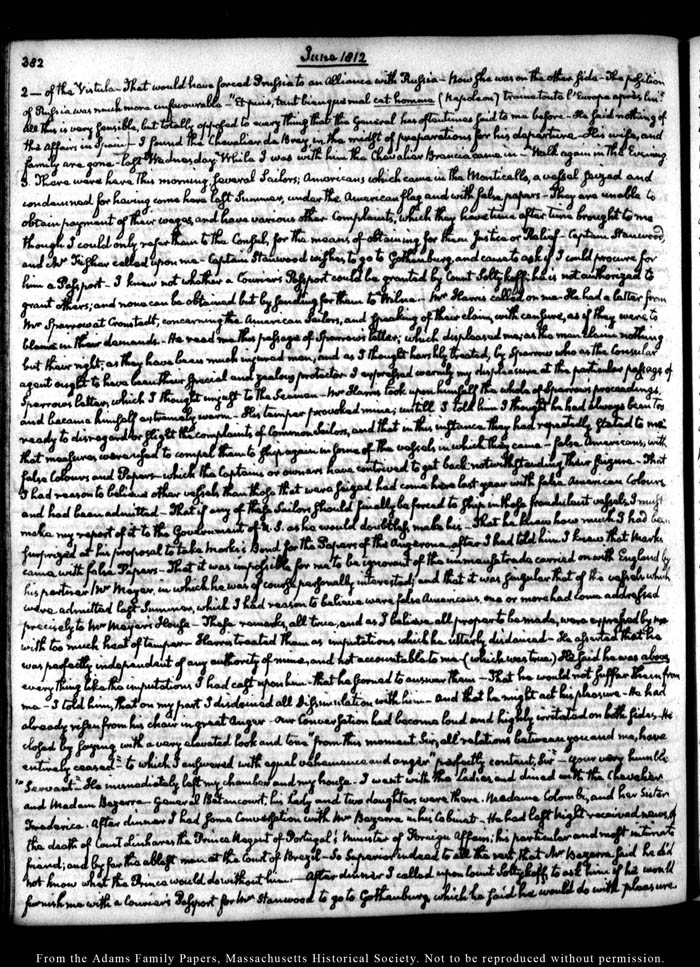 382
June 1812
2— of the Vistula. That would have forced Prussia to an Alliance with Russia— Now she was on the other side— The position
of Russia was much more unfavourable— "Et puis, tant bien que mal cet homme (Napoleon) traine toute l'Europe après lui."
all this is very sensible, but totally opposed to every thing that the General has oftentimes said to me before— He said nothing of
the Affairs in Spain— I found the Chevalier de Bray, in the midst of preparations for his departure— His wife, and
family are gone— last Wednesday. While I was with him the Chevalier Brancia came in— Walk again in the Evening
3. There were here this morning several Sailors; Americans which came in the Monticello, a vessel seized and
condemned for having come here last Summer, under the American flag and with false papers— They are unable to
obtain payment of their wages, and have various other Complaints, which they have time after time brought to me
though I could only refer them to the Consul, for the means of obtaining for them Justice or Relief— Captain Stanwood,
and Mr Fisher called upon me— Captain Stanwood wishes to go to Gothenburg, and came to ask if I could procure for
him a Passport— I knew not whether a Courier's Passport could be granted by Count Soltykoff; he is not authorized to
grant others; and none can be obtained but by sending for them to Wilna— Mr Harris called on me— He had a letter from
Mr Sparrow at Cronstadt, concerning the American Sailors, and speaking of their claim, with censure, as if they were to
blame in their demands— He read me this passage of Sparrow's letter; which displeased me; as the men claim nothing
but their right, as they have been much injured men, and as I thought harshly treated, by Sparrow who as the Consular
agent ought to have been their special and zealous protector I expressed warmly my displeasure at the particular passage of
Sparrow's letter, which I thought unjust to the Seamen— Mr Harris took upon himself the whole of Sparrow's proceedings,
and became himself extremely warm— His temper provoked mine; untill I told him I thought he had always been too
ready to disregard or slight the complaints of Common Sailors, and that in this instance they had repeatedly stated to me
that measures were used to compel them to ship again in some of the vessels in which they came— false Americans, with
false Colours and Papers— which the Captains or owners have contrived to get back notwithstanding their seizure— That
I had reason to believe other vessels than those that were seized had come here last year with false American Colours
and had been admitted— That if any of these Sailors should finally be forced to ship in those fraudulent vessels, I must
make my report of it to the Government of U.S. as he would doubtless make his— That he knew how much I had been
surprized at his proposal to take Marks's Bond for the Papers of the Angerona, after I had told him I knew that Marks
came with false Papers— That it was impossible for me to be ignorant of the immense trade carried on with England by
his partner Mr Meyer, in which he was of course personally interested; and that it was singular that of the vessels which
were admitted last Summer, which I had reason to believe were false Americans, one or more had come addressed
precisely to Mr Meyer's House— These remarks, all true, and as I believe all proper to be made, were expressed by me
with too much heat of temper— Harris treated them as imputations which he utterly disdained— He asserted that he
was perfectly independent of any authority of mine, and not accountable to me— (which was true) He said he was above
every thing like the imputations I had cast upon him— that he scorned to answer them— That he would not suffer them from
me— I told him, that on my part I disdained all Dissimulation with him— And that he might act his pleasure— He had
already risen from his chair in great Anger— Our Conversation had become loud and highly irritated on both sides— He
closed by saying with a very elevated look and tone "from this moment Sir, all relations between you and me, have
entirely ceased"— to which I answered with equal vehemence and anger "perfectly content, Sir"— "your very humble
"Servant." He immediately left my chamber and my house— I went with the Ladies and dined with the Chevalier
and Madam Bezerra— General Betancourt, his lady and two daughters, were there. Madame Colombi, and her Sister
Frederica. After dinner I had some Conversation with Mr Bezerra in his Cabinet— He had last Night received news of
the death of Count Linhares, the Prince Regent of Portugal's Minister of Foreign Affairs; his particular and most intimate
friend; and by far the ablest man at the Court of Brazil— So Superior indeed to all the rest, that Mr Bezerra said he did
not know what the Prince would do without him— After dinner I called upon Count Soltykoff, to ask him if he would
furnish me with a Courier's Passport for Mr Stanwood to go to Gothenburg, which he said he would do with pleasure
From the Adams Family Papers, Massachusetts Historical Society. Not to be reproduced without permission.